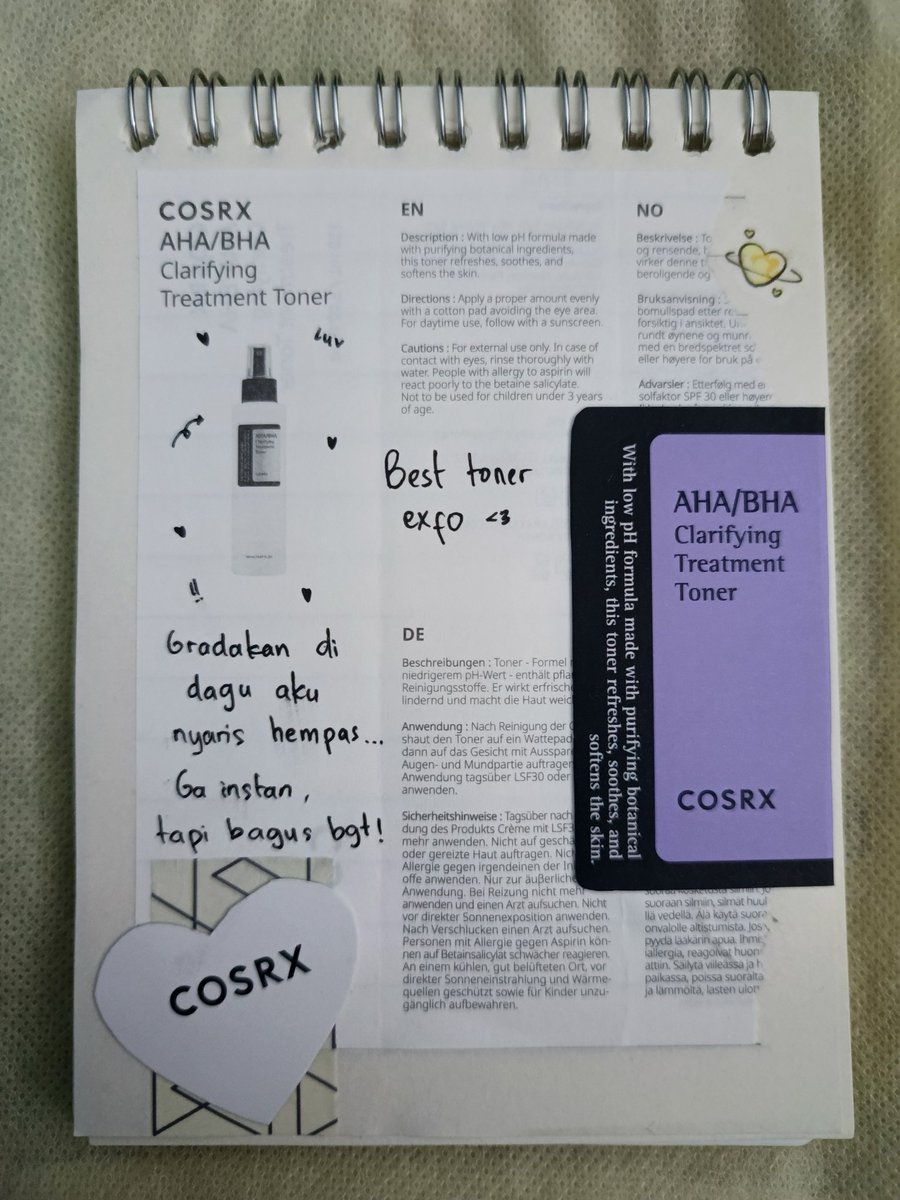 COSRX
AHA/BHA
Clarifying
Treatment Toner
luv
Gradakan di
dagu aku
nyaris hempas...
Ga instan,
tapi bagus bgt!
COSRX
EN
Description : With low pH formula made
with purifying botanical ingredients,
this toner refreshes, soothes, and
softens the skin.
Directions : Apply a proper amount evenly
with a cotton pad avoiding the eye area.
For daytime use, follow with a sunscreen.
Cautions : For external use only. In case of
contact with eyes, rinse thoroughly with
water. People with allergy to aspirin will
react poorly to the betaine salicylate.
Not to be used for children under 3 years
of age.
Best toner
exfo <3
DE
Beschreibungen : Toner - Formel
niedrigerem pH-Wert - enthält
Reinigungsstoffe. Er wirkt
lindernd und macht die Haut
Anwendung : Nach Reinigung der
shaut den Toner auf ein Wattepad
dann auf das Gesicht mit
Augen- und Mundpartie auftragen
Anwendung tagsüber LSF30 oder
anwenden.
Sicherheitshinweise : Tagsüber nach
dung des Produkts Crème mit
mehr anwenden. Nicht auf
oder gereizte Haut auftragen.
Allergie gegen irgendeinen der
offe anwenden. Nur zur
Anwendung. Bei Reizung nicht mehr
anwenden und einen Arzt aufsuchen. Nicht
vor direkter Sonnenexposition anwenden.
Nach Verschlucken einen Arzt aufsuchen.
Personen mit Allergie gegen Aspirin kön-
nen auf Betainsalicylat schwächer reagieren.
An einem kühlen, gut belüfteten Ort, vor
direkter Sonneneinstrahlung und Wärme-
quellen geschützt sowie für Kinder unzu-
gänglich aufbewahren.
NO
Beskrivelse :
og rensende,
virker denne
beroligende og
Bruksanvisning :
bomullspad etter
forsiktig i ansiktet.
rundt øynene og
med en bredspektret
eller høyere for bruk på
Advarsler : Etterfølg med
solfaktor SPF 30 eller
With low pH formula made with purifying botanical
ingredients, this toner refreshes, soothes, and
softens the skin.
AHA/BHA
Clarifying
Treatment
Toner
COSRX
suoraan silmiin, silmät
llä vedellä. Älä käytä
onvalolle altistumista.
pyydä lääkärin apua.
iallergia, reagoivat
attiin. Säilytä viileässä ja
paikassa, poissa
ja lämmöltä, lasten